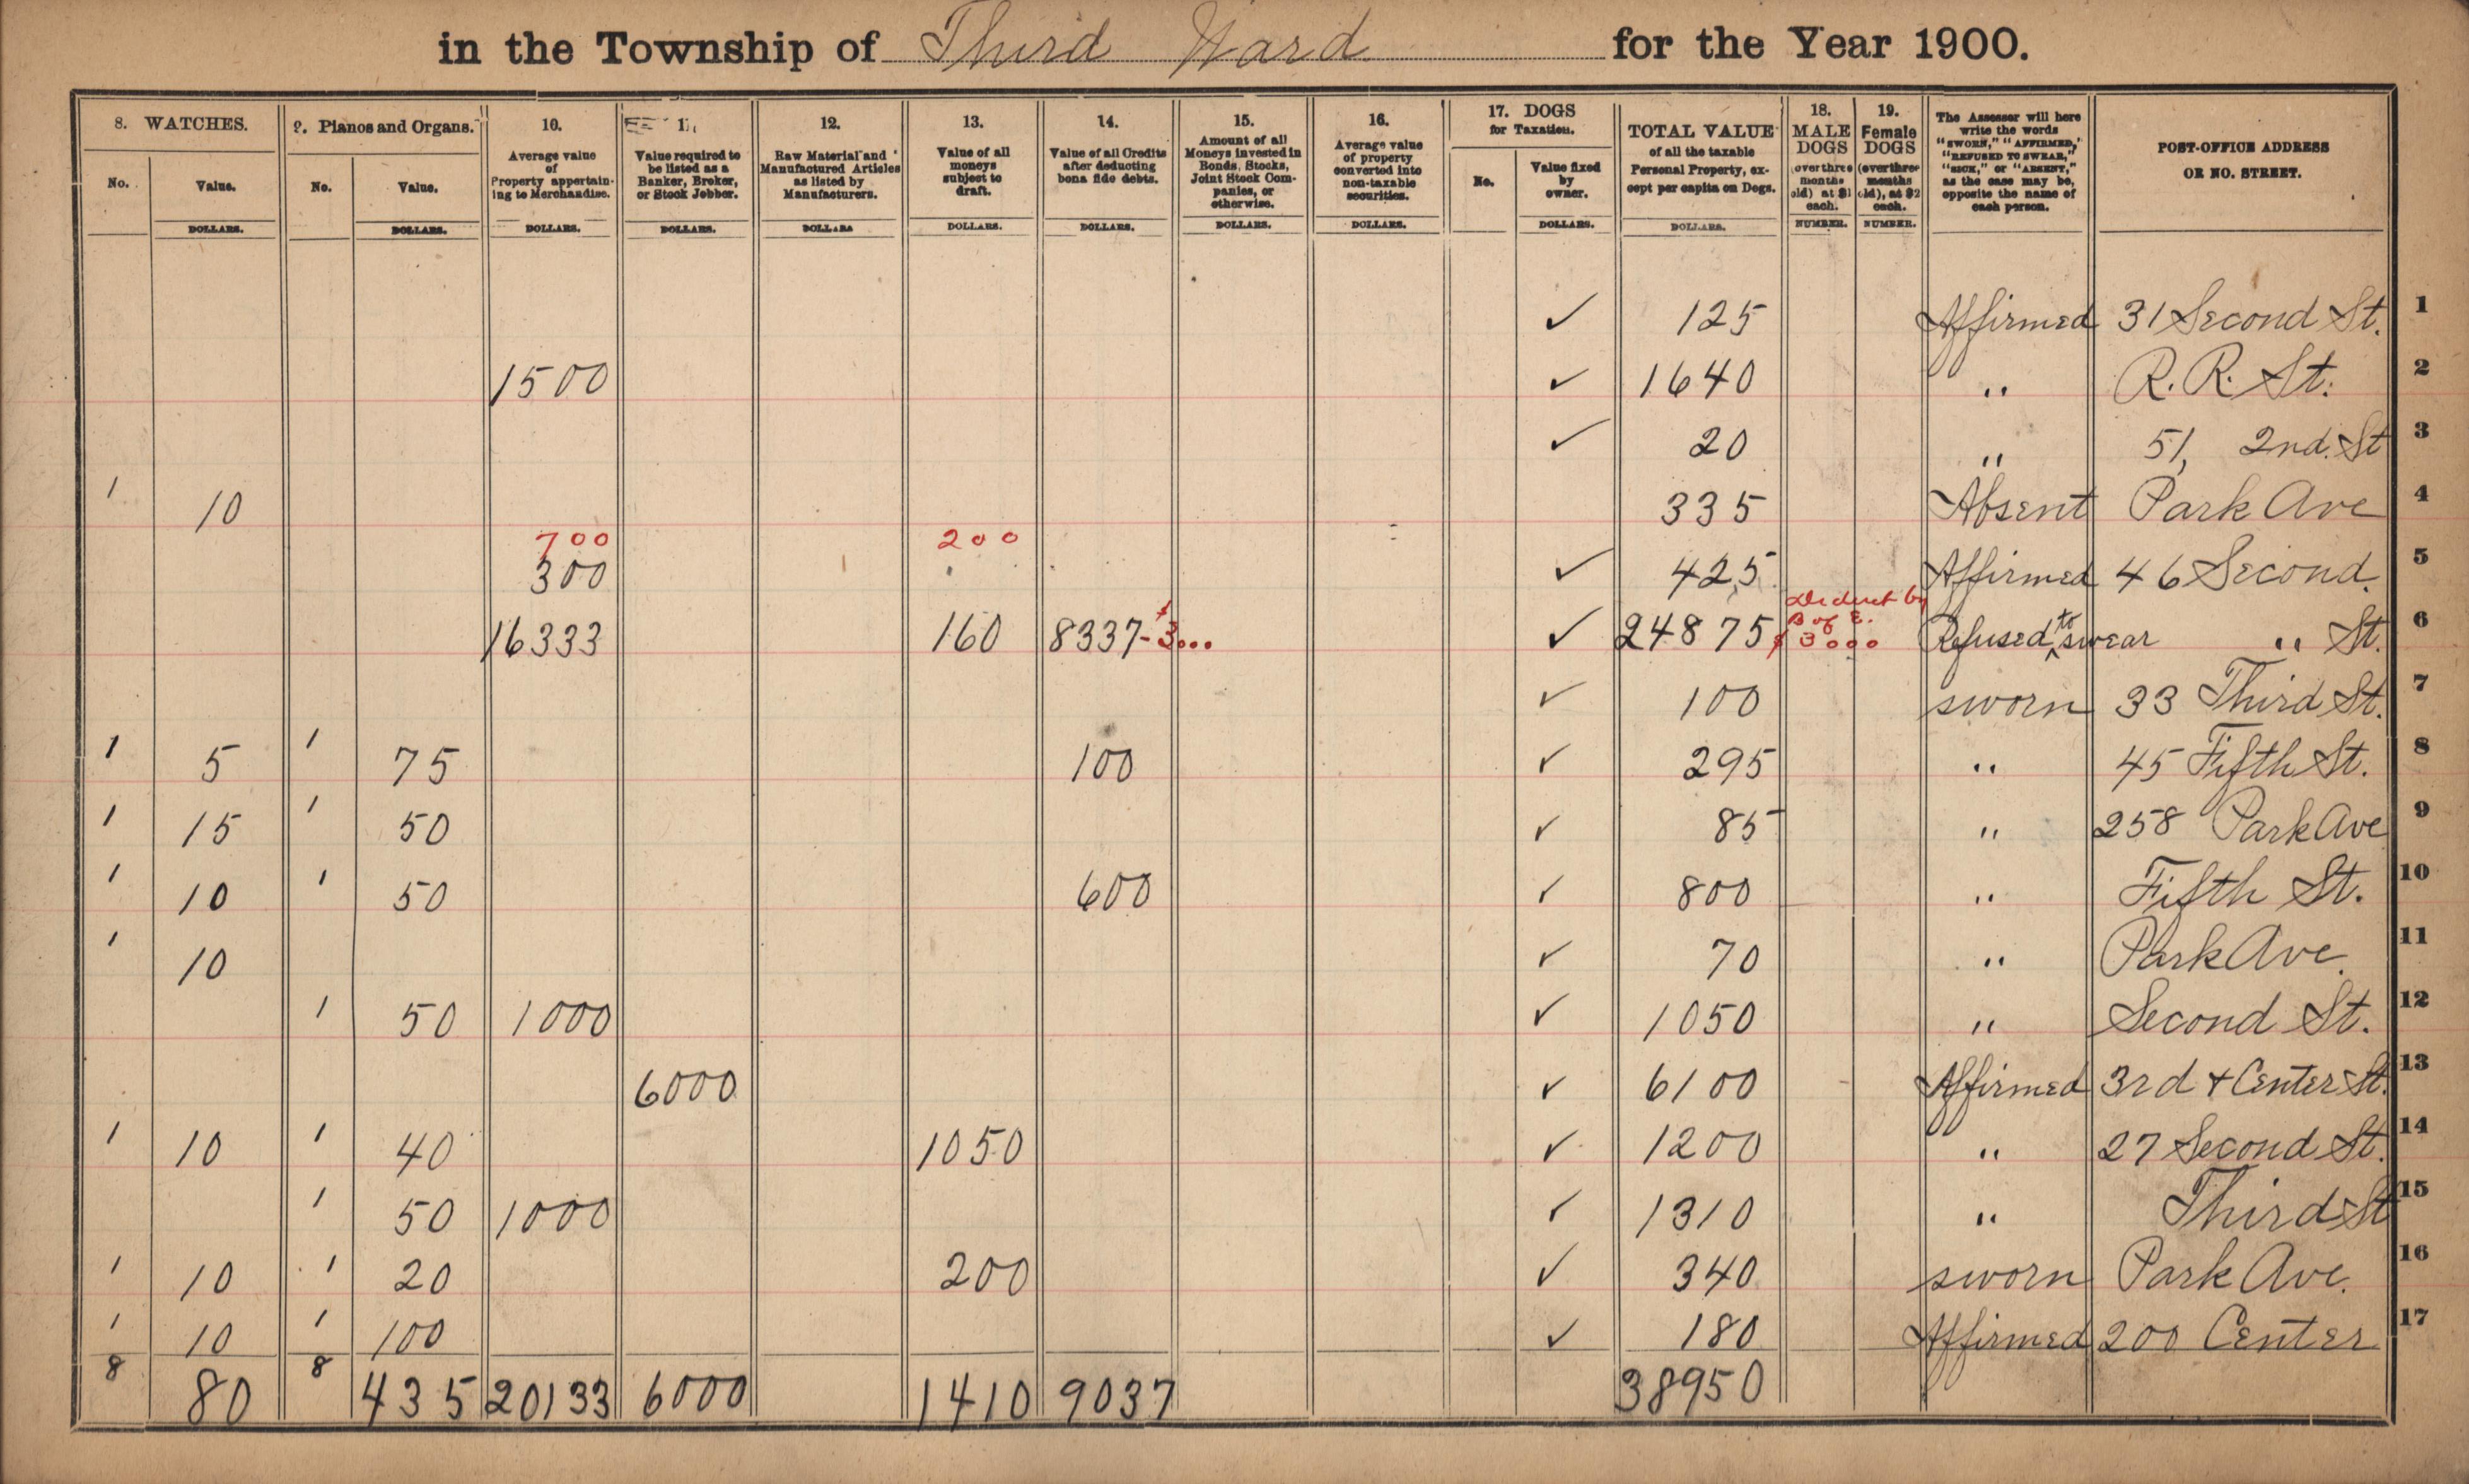 in the Township of Third Ward for the Year 1900.
8. WATCHES. 9. Pianos and Organs. 10. 11. 12. 13. 14. 15. 16. 17. DOGS for Taxation. TOTAL VALUE of all the taxable Personal Property, except per capita on Dogs. 18. MALE DOGS (over three months old) at $1 each. 19. Female DOGS (over three months old), at $2 each. The Assessor will here write the words "SWORN," "AFFIRMED," "REFUSED TO SWEAR," "SICK," or "ABSENT," as the case may be, opposite the name of each person. POST-OFFICE ADDRESS OR NO. STREET.
No. Value. No. Value. Average value of Property appertaining to Merchandise. Value required to be listed as a Banker, Broker, or Stock Jobber. Raw Material and Manufactured Articles as listed by Manufacturers. Value of all moneys subject to draft. Value of all Credits after deducting bona fide debts. Amount of all Moneys invested in Bonds, Stocks, Joint Stock Companies, or otherwise. Average value of property converted into non-taxable securities. No. Value fixed by owner.
DOLLARS. DOLLARS. DOLLARS. DOLLARS. DOLLARS DOLLARS. DOLLARS. DOLLARS. DOLLARS. DOLLARS. DOLLARS. NUMBER. NUMBER.
✓ 125 Affirmed 31 Second St. 1
1500 ✓ 1640 " R. R. St. 2
✓ 20 " 51, 2nd. St 3
1 10 335 Absent Park Ave 4
700 200
300 ✓ 425 Affirmed 46 Second 5
Deduct by
B of E.
16333 160 8337 - $3000 ✓ 24875 $3000 Refused to swear " St. 6
✓ 100 sworn 33 Third St. 7
1 5 1 75 100 ✓ 295 " 45 Fifth St. 8
1 15 1 50 ✓ 85 " 258 Park Ave 9
1 10 1 50 600 ✓ 800 " Fifth St. 10
1 10 ✓ 70 " Park Ave. 11
1 50 1000 ✓ 1050 " Second St. 12
6000 ✓ 6100 Affirmed 3rd + Center St. 13
1 10 1 40 1050 ✓ 1200 " 27 Second St. 14
1 50 1000 ✓ 1310 " Third St 15
1 10 1 20 200 ✓ 340 sworn Park Ave. 16
1 10 1 100 ✓ 180 Affirmed 200 Center 17
8 80 8 435 20133 6000 1410 9037 38950